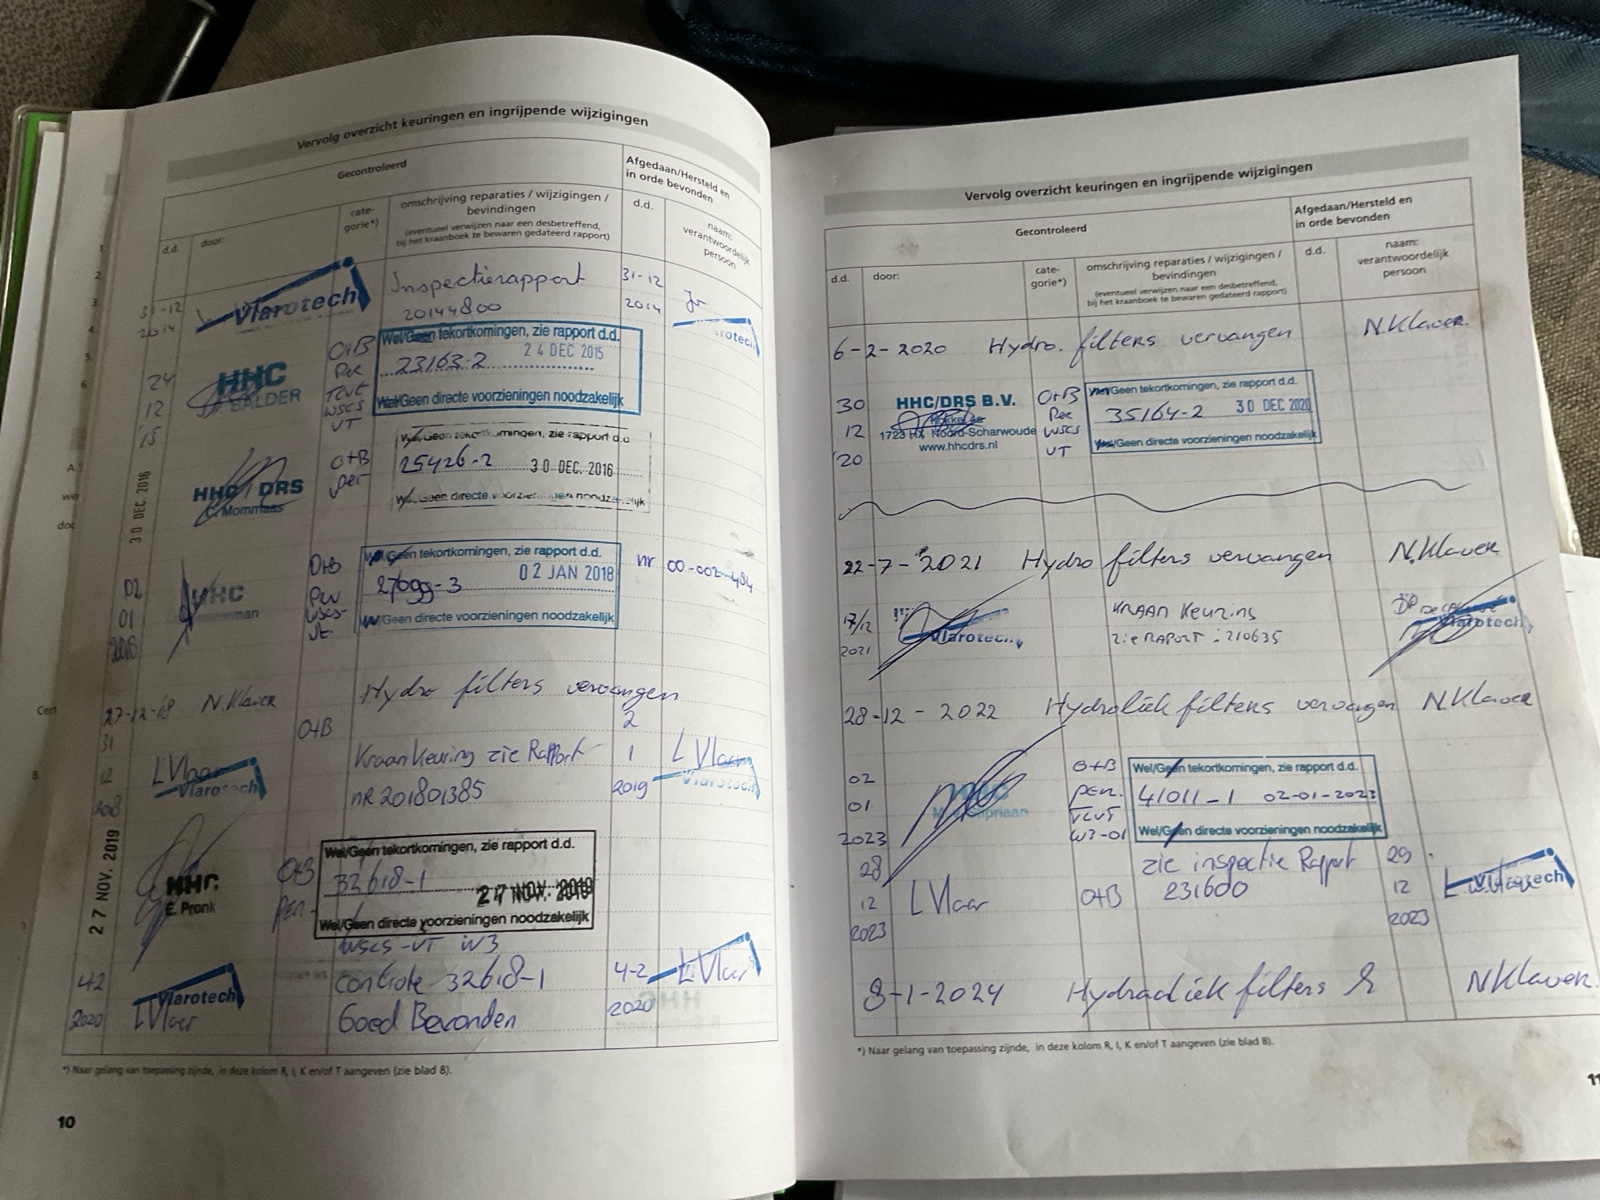 Vervolg overzicht keuringen en ingrijpende wijzigingen
Gecontroleerd
Afgedaan/Hersteld en
in orde bevonden
d.d.
door:
cate-
gorie*)
omschrijving reparaties / wijzigingen /
bevindingen
(eventueel verwijzen naar een desbetreffend,
bij het kraanboek te bewaren gedateerd rapport)
d.d.
naam:
verantwoordelijk
persoon
31-12
2014
Vlarotech
Inspectierapport
20144800
31-12
2014
24
12
'15
HHC
BALDER
O+B
Per
TCVT
WSCS
VT
Wel/Geen tekortkomingen, zie rapport d.d.
23163-2 24 DEC 2015
Wel/Geen directe voorzieningen noodzakelijk
30 DEC 2016
HHC / DRS
C. Mommaas
O+B
per
Wel/Geen tekortkomingen, zie rapport d.d.
25426-2 30 DEC. 2016
Wel/Geen directe voorzieningen noodzakelijk
02
01
2018
HHC
O+B
per
WSCS-
VT-
Wel/Geen tekortkomingen, zie rapport d.d.
27699-3 02 JAN 2018
Wel/Geen directe voorzieningen noodzakelijk
nr 00-002-484
27-12-18 N. Klaver Hydro filters vervangen
31
12
2018
L Vlaar
Vlarotech
O+B
Kraan keuring zie Rapport
nR 201801385
2
1
2019
L Vlaar
Vlarotech
27 NOV. 2019
HHC
E. Pronk
O+B
per-
Wel/Geen tekortkomingen, zie rapport d.d.
32618-1 27 NOV. 2019
Wel/Geen directe voorzieningen noodzakelijk
WSCS-VT W3
4-2
2020
Vlarotech
L Vlaar
controle 32618-1
Goed Bevonden
4-2
2020
L Vlaar
*) Naar gelang van toepassing zijnde, in deze kolom R, I, K en/of T aangeven (zie blad 8).
10
Vervolg overzicht keuringen en ingrijpende wijzigingen
Gecontroleerd
Afgedaan/Hersteld en
in orde bevonden
d.d.
door:
cate-
gorie*)
omschrijving reparaties / wijzigingen /
bevindingen
(eventueel verwijzen naar een desbetreffend,
bij het kraanboek te bewaren gedateerd rapport)
d.d.
naam:
verantwoordelijk
persoon
6-2-2020 Hydro. filters vervangen N. Klaver
30
12
'20
HHC/DRS B.V.
1723 HX Noord-Scharwoude
www.hhcdrs.nl
O+B
Per
WSCS
VT
Wel/Geen tekortkomingen, zie rapport d.d.
35164-2 30 DEC 2020
Wel/Geen directe voorzieningen noodzakelijk
22-7-2021 Hydro filters vervangen N. Klaver
17/12
2021
Vlarotech
KRAAN Keuring
zie RAPORT : 210635
Vlarotech
28-12-2022 Hydroliek filters vervangen N. Klaver
02
01
2023
O+B
per.
TCVT
W3-01
Wel/Geen tekortkomingen, zie rapport d.d.
41011-1 02-01-2023
Wel/Geen directe voorzieningen noodzakelijk
28
12
2023
L Vlaar
O+B
zie inspectie Rapport
231600
29
12
2023
Vlarotech
8-1-2024 Hydrauliek filters N Klaver
*) Naar gelang van toepassing zijnde, in deze kolom R, I, K en/of T aangeven (zie blad 8).
11